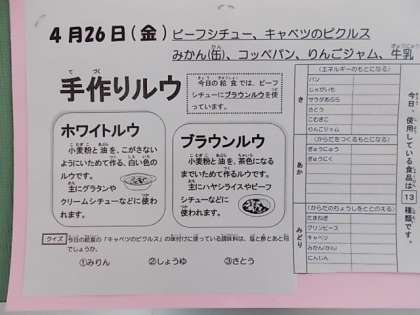 4月26日(金) ビーフシチュー、キャベツのピクルス
みかん(缶)、コッペパン、りんごジャム、牛乳
手作りルウ
今日の給食では、ビーフ
シチューにブラウンルウを使
っています。
ホワイトルウ
小麦粉と油を、こがさない
ようにいためて作る、白い色の
ルウです。
主にグラタンや
クリームシチューなどに使わ
れます。
ブラウンルウ
小麦粉と油を、茶色になる
までいためて作るルウです。
主にハヤシライスやビーフ
シチューなどに
使われます。
クイズ 今日の給食の「キャベツのピクルス」の味付けに使っている調味料は、塩と酢とあと何
でしょうか。
①みりん ②しょうゆ ③さとう
今日、使用している食品は13種類です。
き
(エネルギーのもとになる)
パン
じゃがいも
サラダあぶら
さとう
こむぎこ
りんごジャム
あか
(からだをつくるもとになる)
ぎゅうにゅう
ぎゅうにく
みどり
(からだのちょうしをととのえる)
たまねぎ
グリンピース
キャベツ
みかん(かん)
にんじん